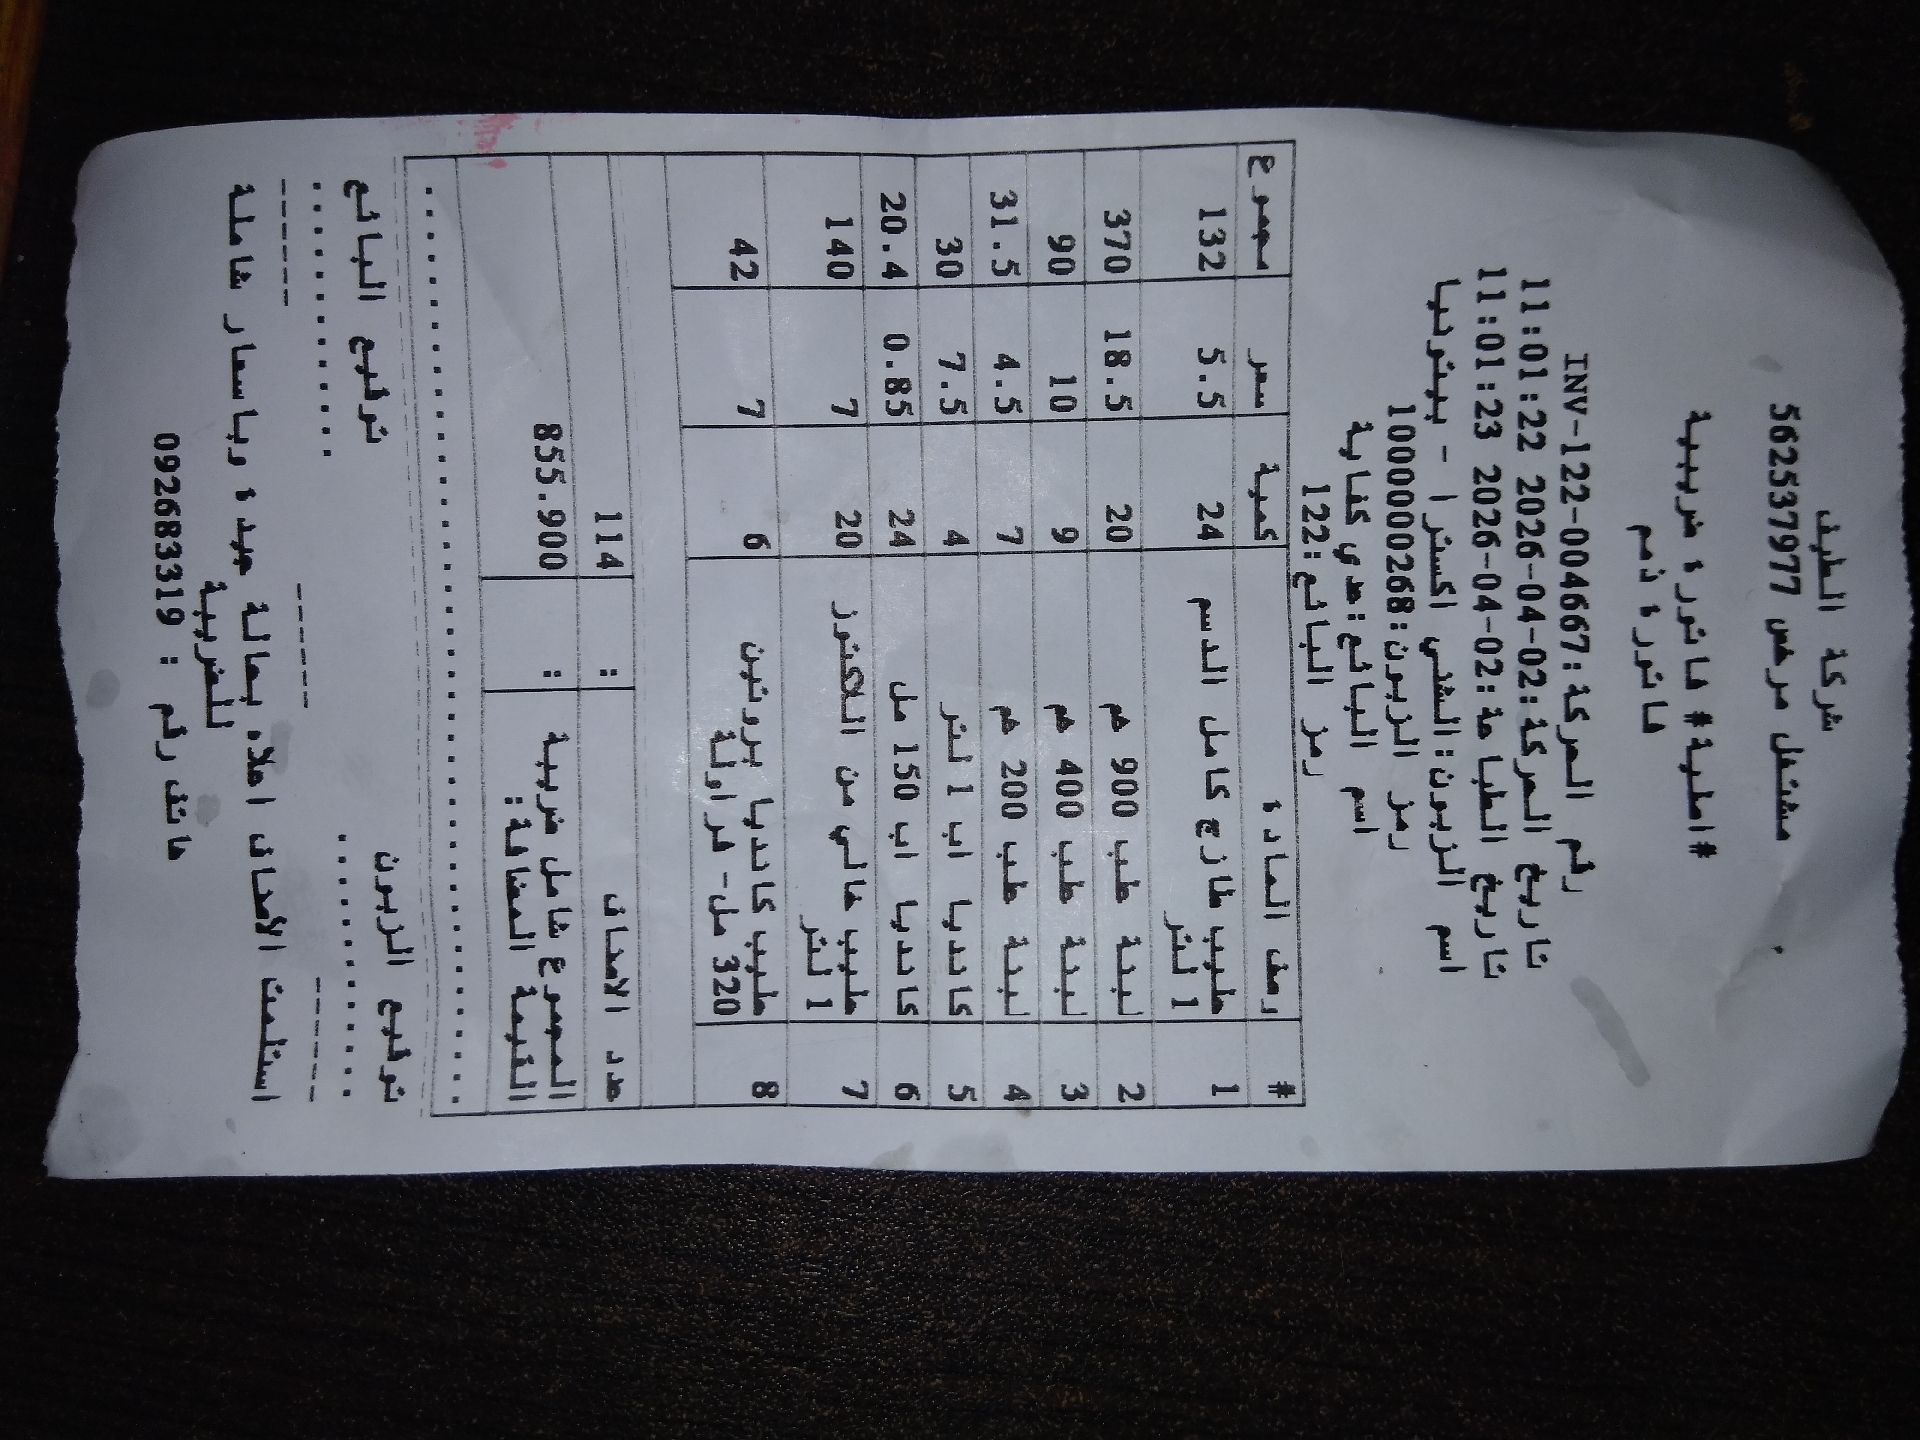 شركة الطيف
مشتغل مرخص 562537977
#اصلية# فاتورة ضريبية
فاتورة ذمم
رقم الحركة:INV-122-004667
تاريخ الحركة:02-04-2026 11:01:22
تاريخ الطباعة:02-04-2026 11:01:23
اسم الزبون:الشني اكسترا - بيتونيا
رمز الزبون:1000000268
اسم البائع:عدي كفاية
رمز البائع:122
# وصف المادة كمية سعر مجموع
1 حليب طازج كامل الدسم 24 5.5 132
1 لتر
2 لبنة طب 900 غم 20 18.5 370
3 لبنة طب 400 غم 9 10 90
4 لبنة طب 200 غم 7 4.5 31.5
5 كانديا اب 1 لتر 4 7.5 30
6 كانديا اب 150 مل 24 0.85 20.4
7 حليب خالي من اللاكتوز 20 7 140
1 لتر
8 حليب كانديا بروتين 6 7 42
320 مل- فراولة
عدد الاصناف : 114
المجموع شامل ضريبة : 855.900
القيمة المضافة:
توقيع الزبون توقيع البائع
استلمت الأصناف اعلاه بحالة جيدة وباسعار شاملة
للضريبة
هاتف رقم : 092683319